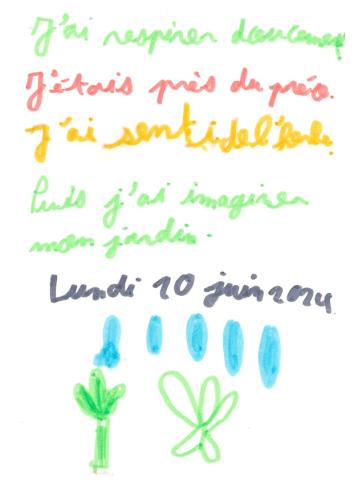 J'ai respirer doucement
J'étais près du préo.
J'ai senti de l'herbe.
Puis j'ai imaginer
mon jardin.
Lundi 10 juin 2024